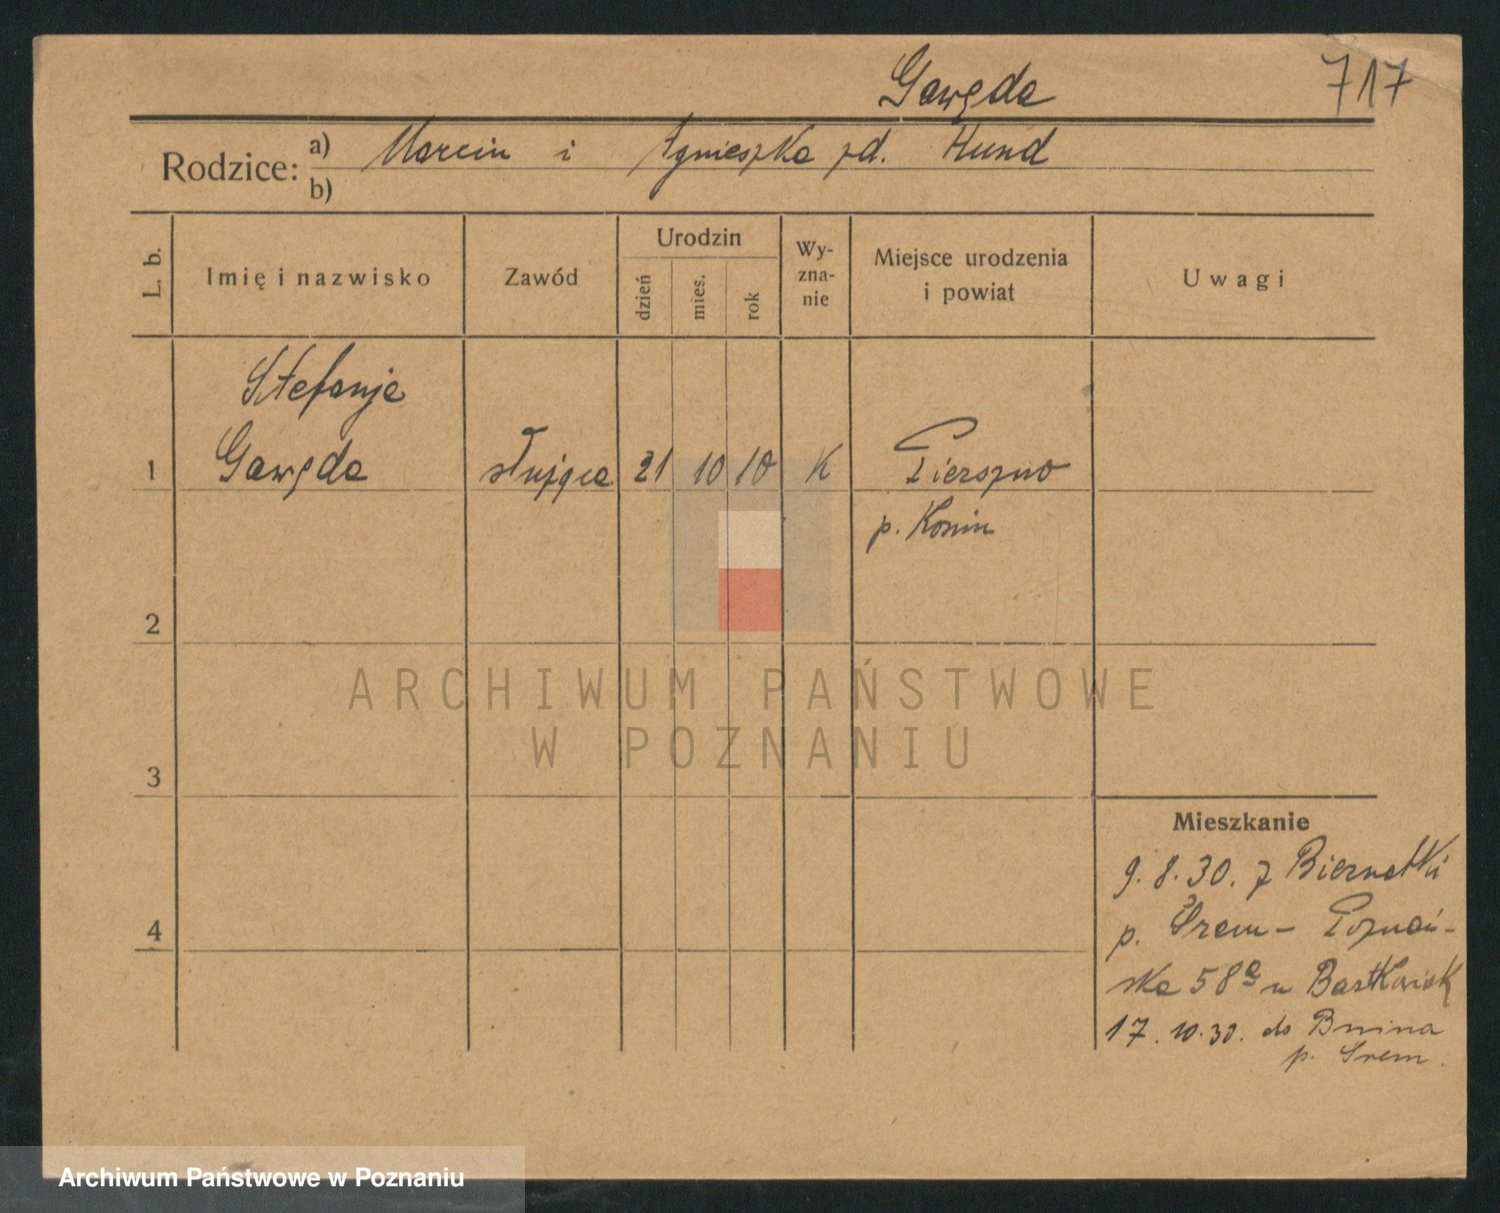 Gawęda
717
Rodzice: a) Marcin i Agnieszka zd. Hund
b)
L. b.
Imię i nazwisko
Zawód
Urodzin
dzień
mies.
rok
Wy-
zna-
nie
Miejsce urodzenia
i powiat
Uwagi
Stefanja
1 Gawęda służąca 21 10 10 K Pierszno
p. Konin
2
3
4
ARCHIWUM PAŃSTWOWE
W POZNANIU
Mieszkanie
9.8.30. z Biernatki
p. Śrem - Poznań-
ska 58a u Bartkowiak
17.10.30. do Bnina
p. Śrem.
Archiwum Państwowe w Poznaniu